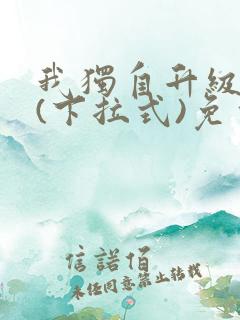 我獨自升級
(下拉式)免
信諾佰
未任同意禁止轉載